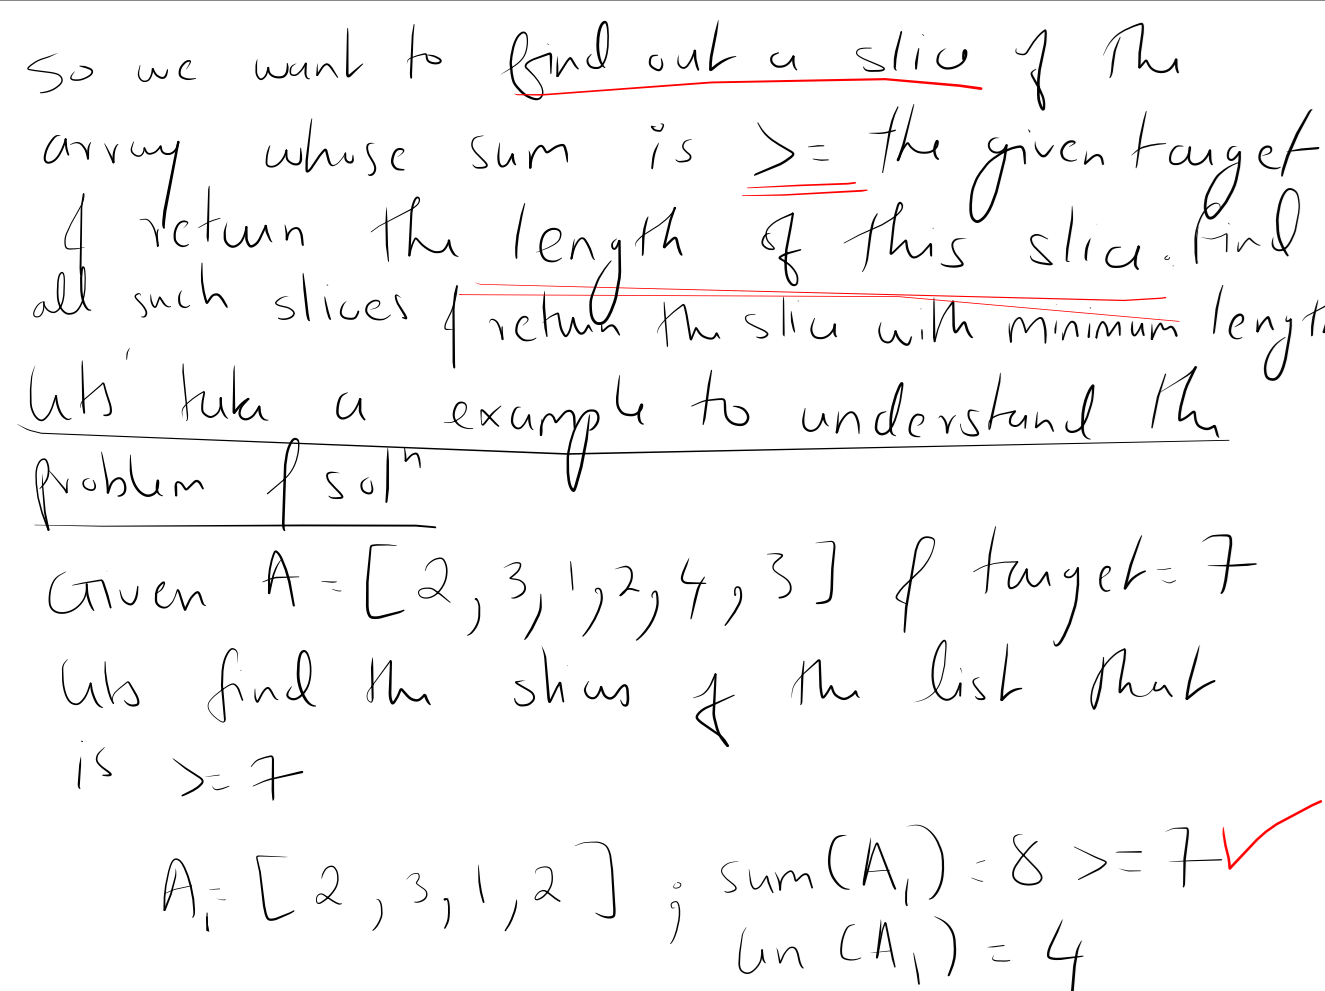 So we want to find out a slice of the
array whose sum is >= the given target
& return the length of this slice. Find
all such slices & return the slice with minimum length
Lets' take a example to understand the
problem & solⁿ
Given A = [2, 3, 1, 2, 4, 3] & target = 7
Lets find the slices of the list that
is >= 7
A₁ = [2, 3, 1, 2] ; sum(A₁) = 8 >= 7 ✓
len(A₁) = 4